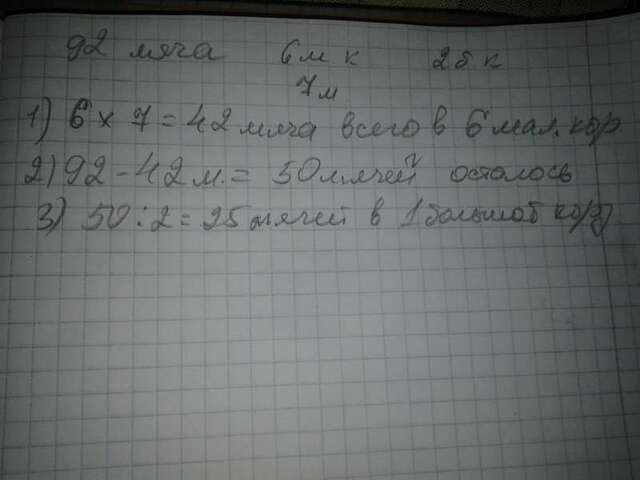 92 мяча 6 м к 2 б к
7 м
1) 6 x 7 = 42 мяча всего в 6 мал. кор.
2) 92 - 42 м. = 50 мячей осталось
3) 50 : 2 = 25 мячей в 1 большой кор)